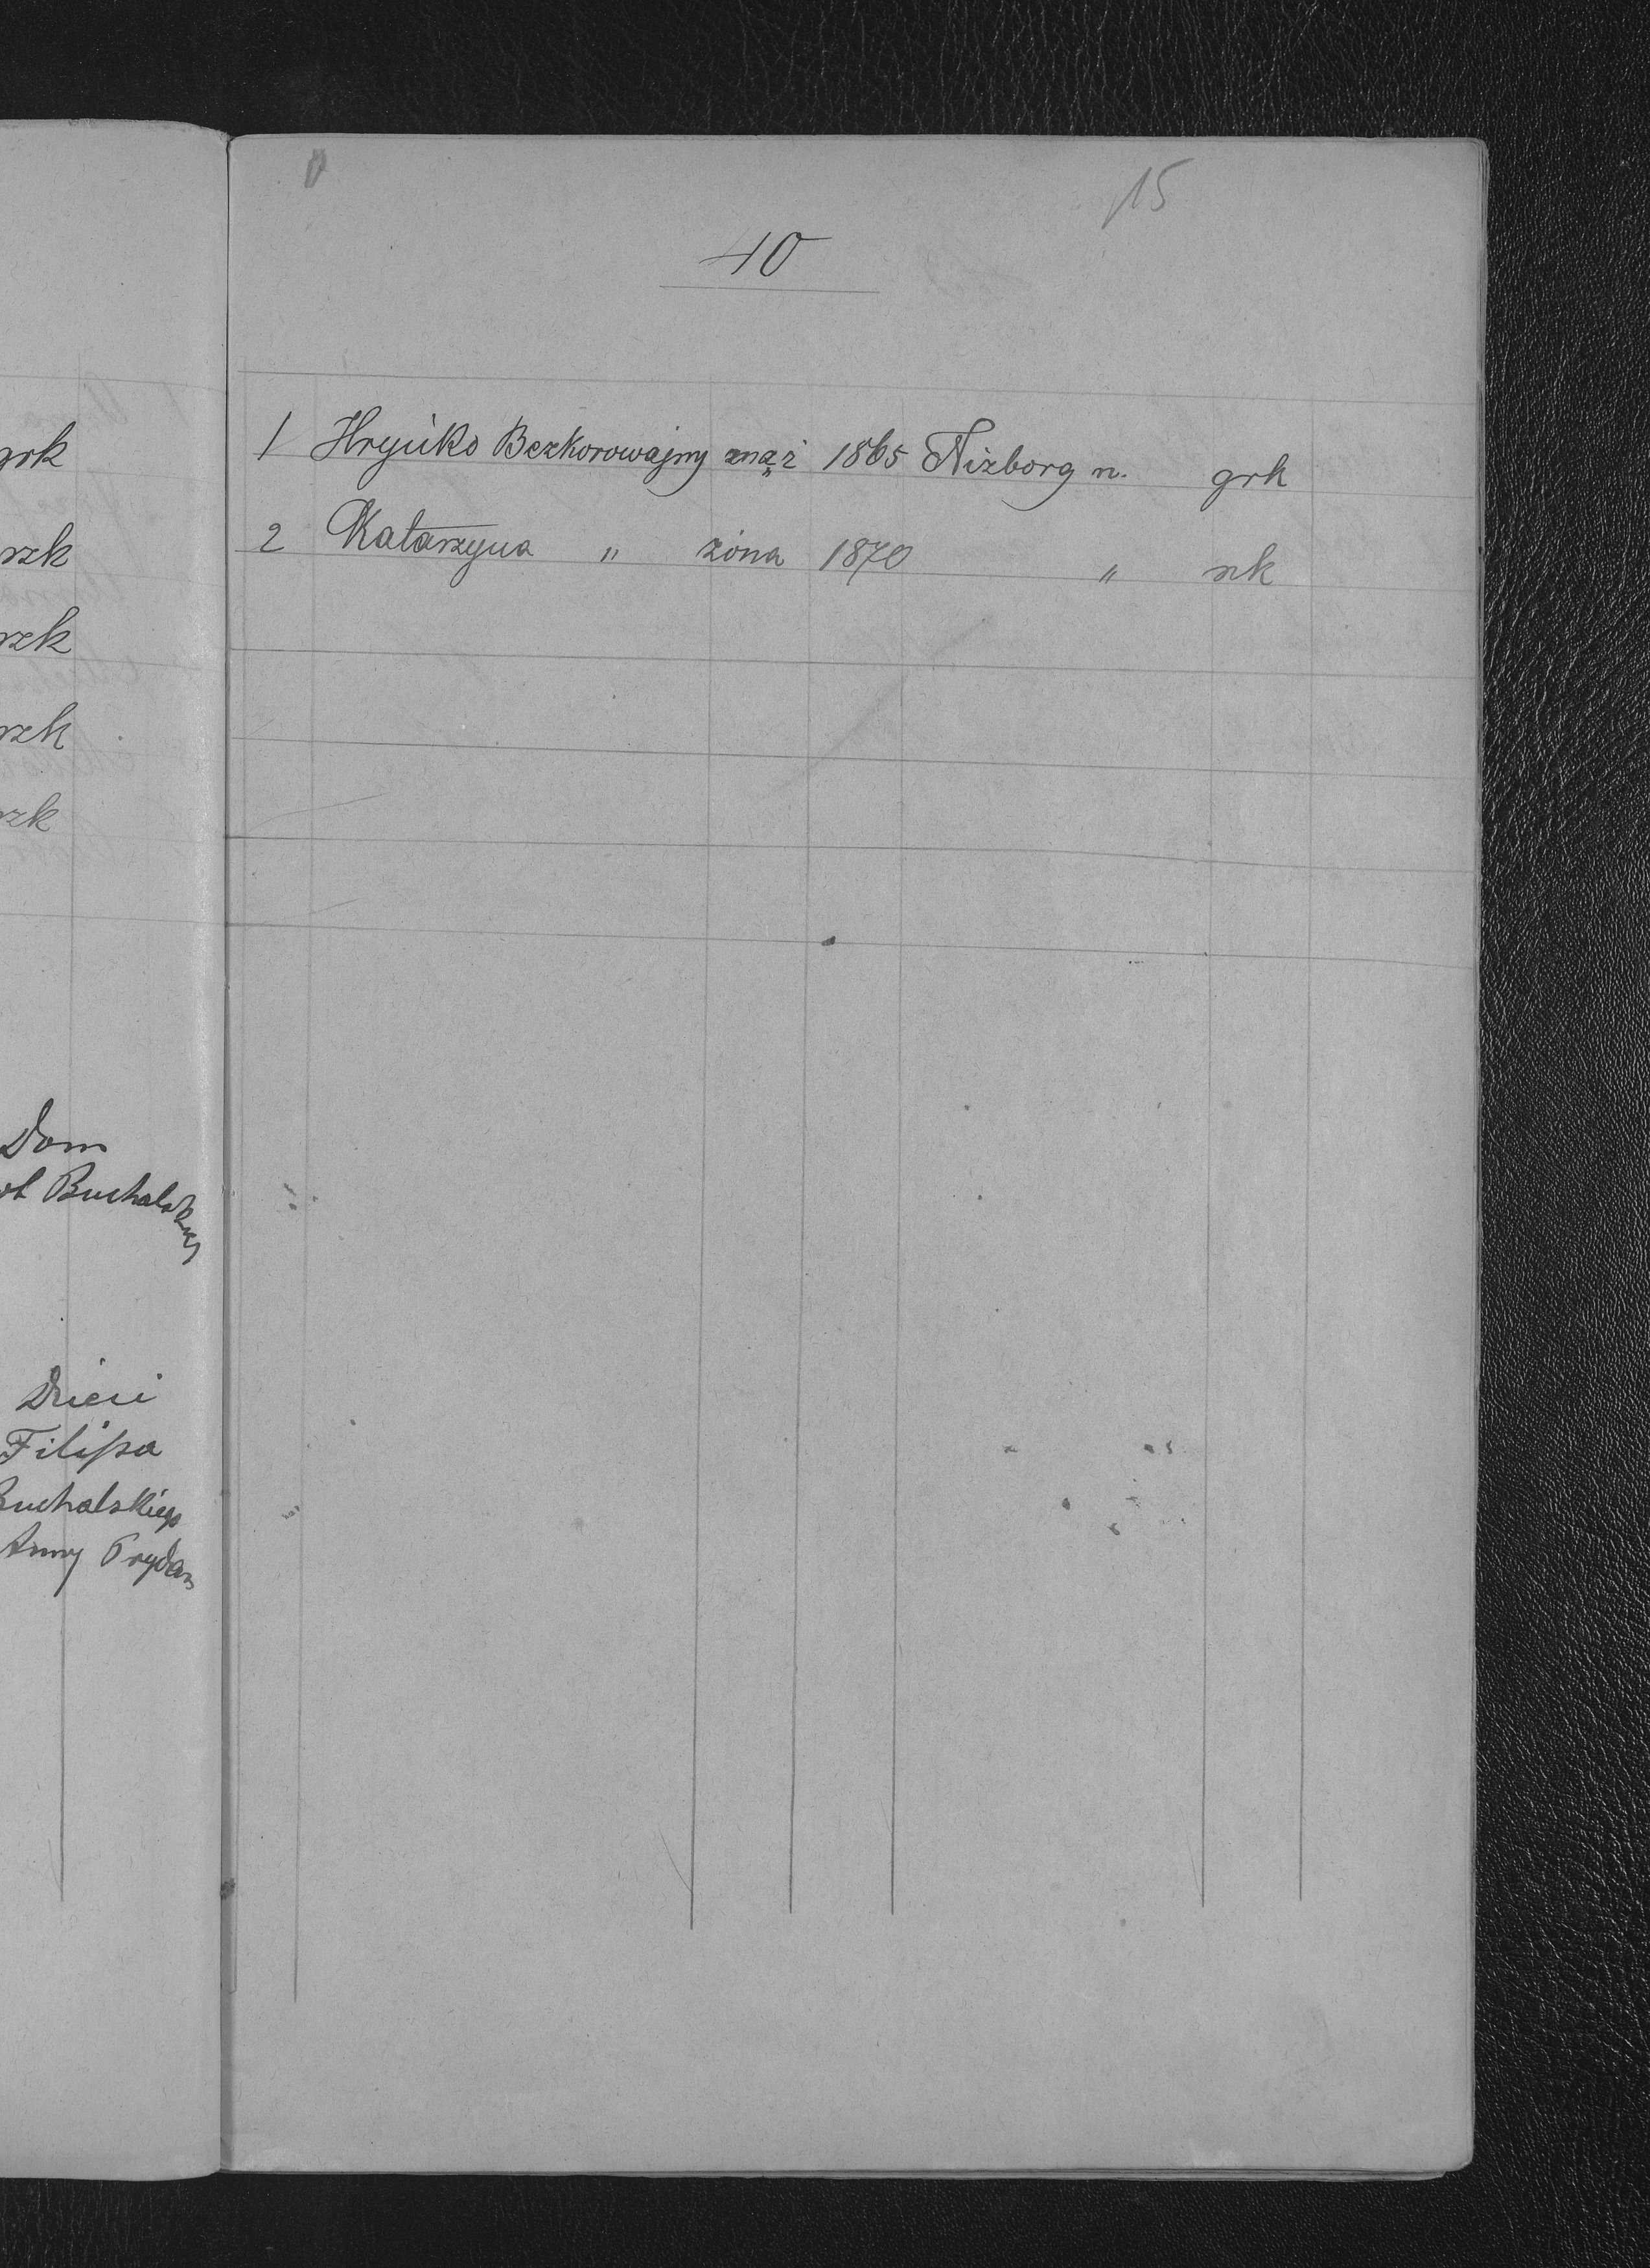 grk
rzk
rzk
rzk
rzk
Dom
Buchalskiej
Dzieci
Filipa
Buchalskiego
Anny Prydan
15
40
1 Hryńko Bezkorowajny mąż 1865 Niżborg n. grk
2 Katarzyna " żona 1870 " rzk